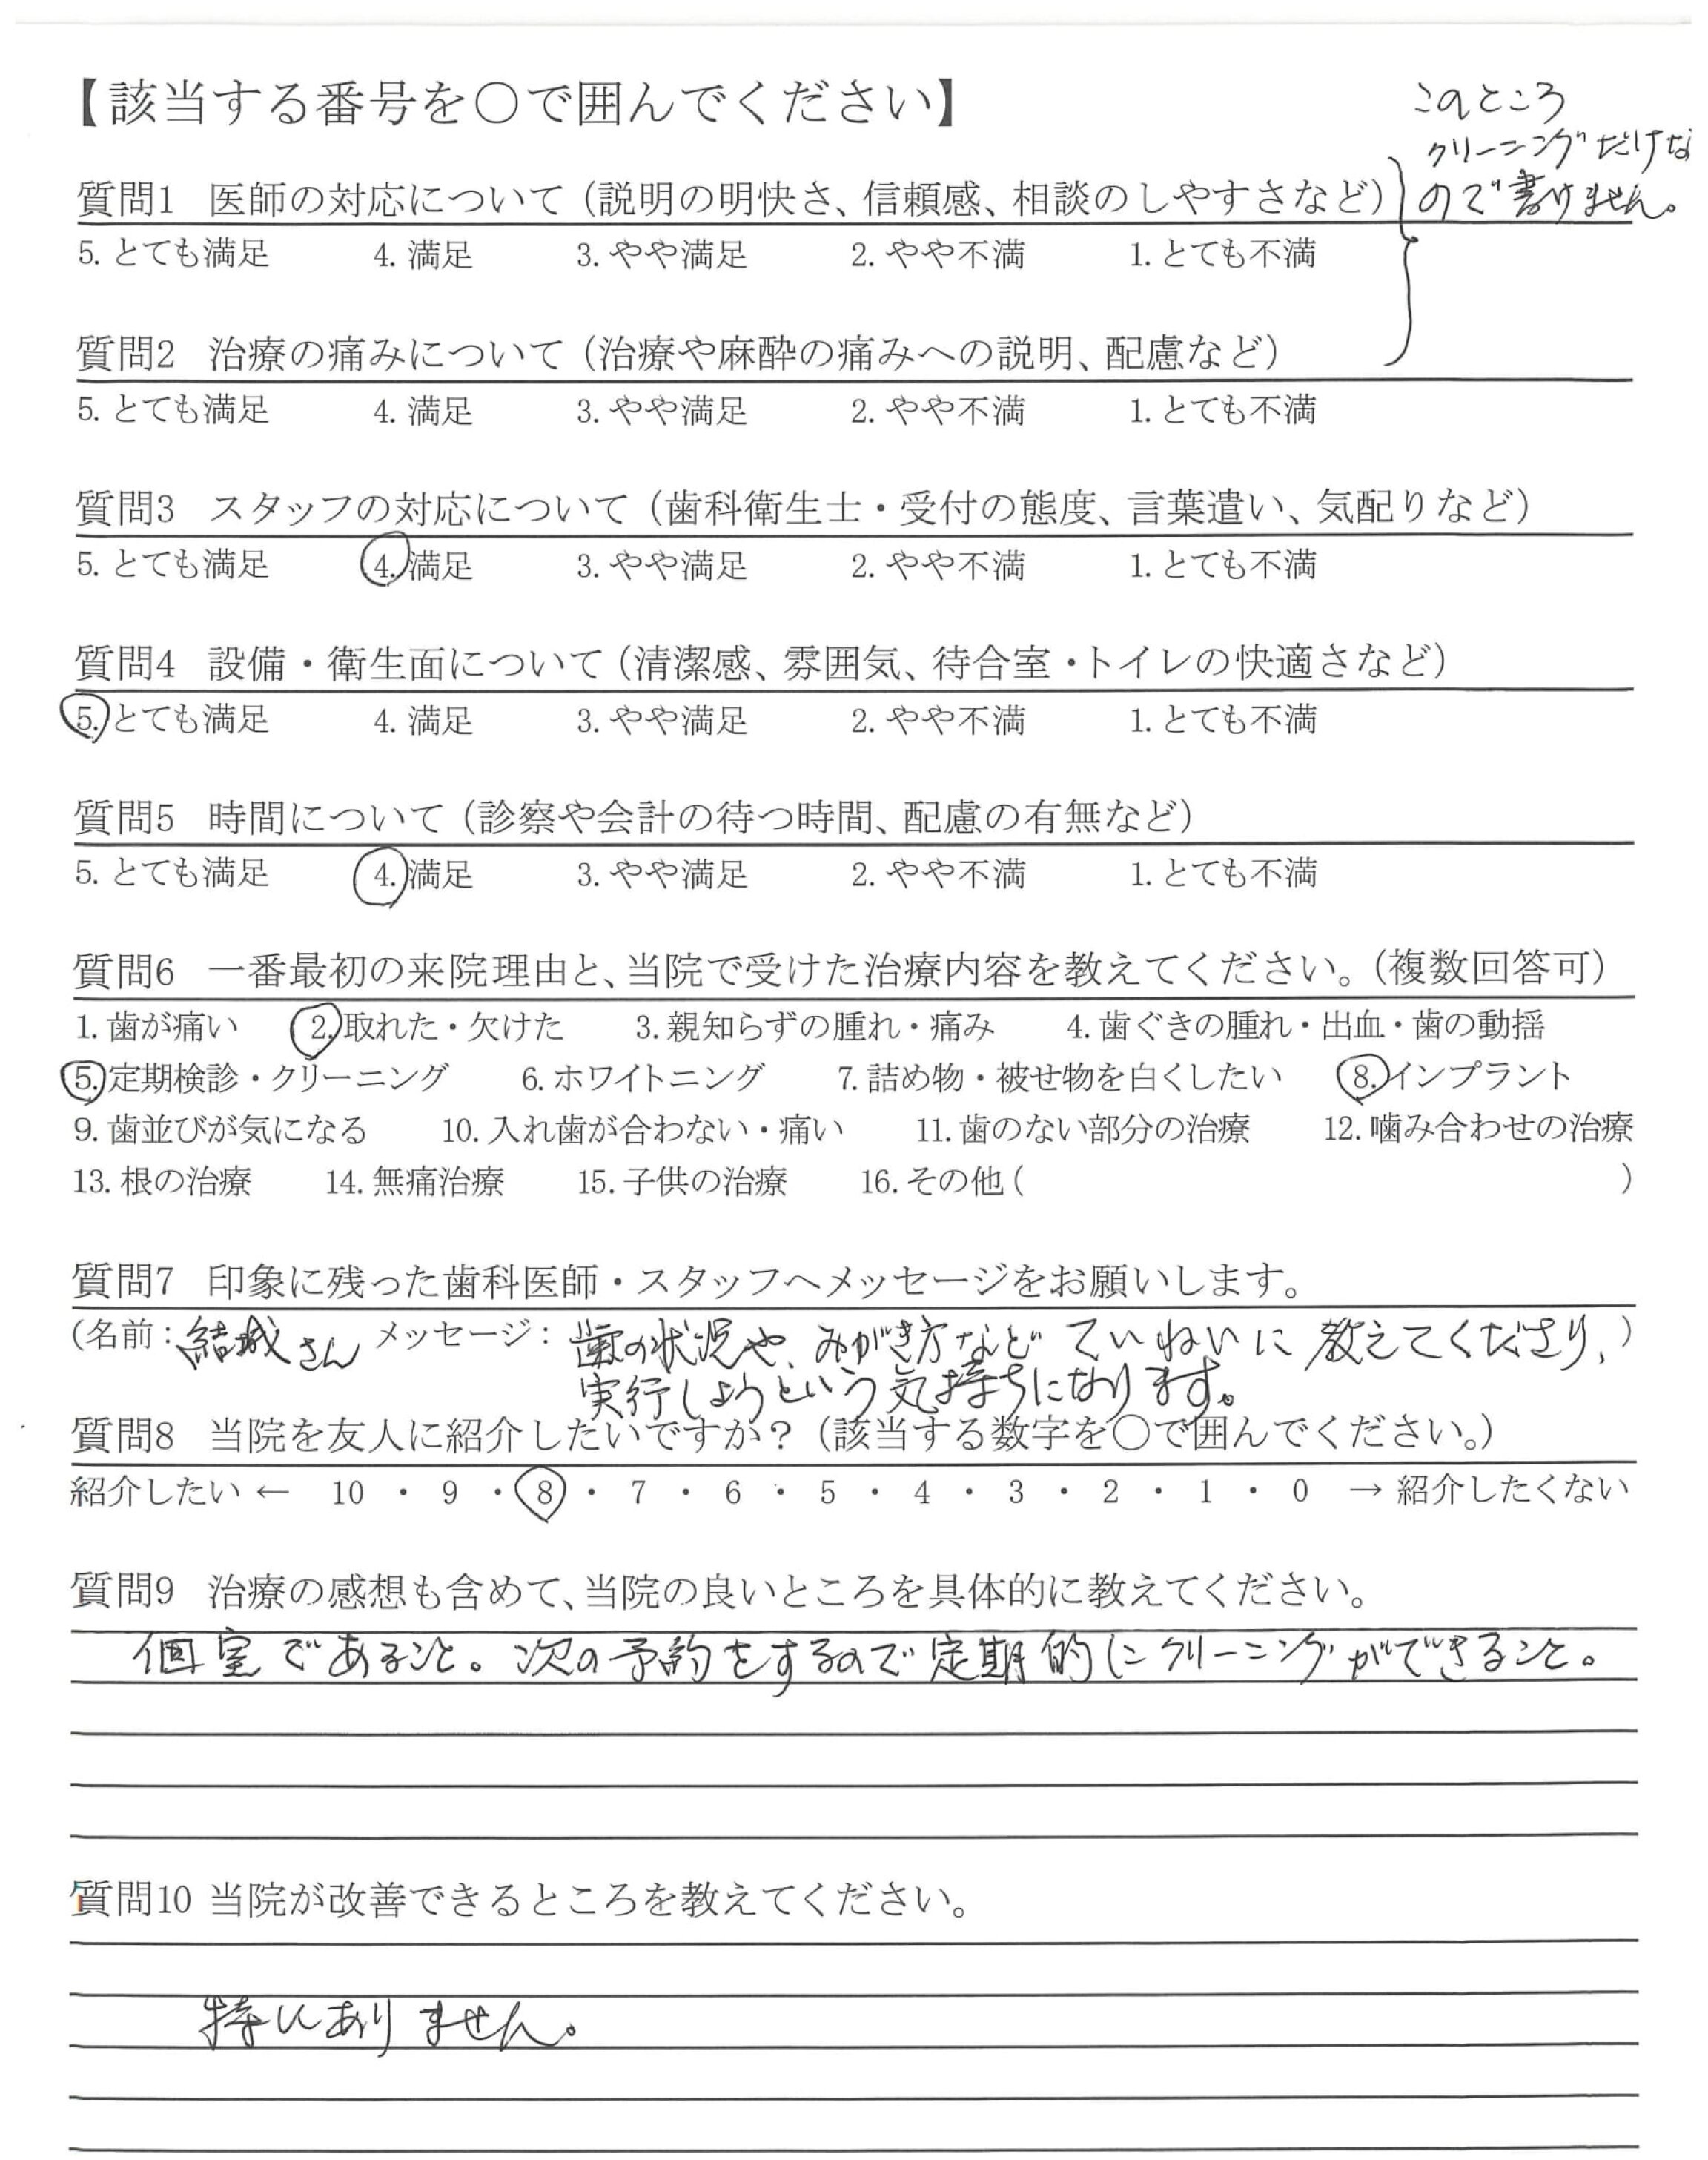 【該当する番号を○で囲んでください】
このところ
クリーニングだけな
ので書けません。
質問1 医師の対応について（説明の明快さ、信頼感、相談のしやすさなど）
5. とても満足 4. 満足 3. やや満足 2. やや不満 1. とても不満
質問2 治療の痛みについて（治療や麻酔の痛みへの説明、配慮など）
5. とても満足 4. 満足 3. やや満足 2. やや不満 1. とても不満
質問3 スタッフの対応について（歯科衛生士・受付の態度、言葉遣い、気配りなど）
5. とても満足 4. 満足 3. やや満足 2. やや不満 1. とても不満
質問4 設備・衛生面について（清潔感、雰囲気、待合室・トイレの快適さなど）
5. とても満足 4. 満足 3. やや満足 2. やや不満 1. とても不満
質問5 時間について（診察や会計の待つ時間、配慮の有無など）
5. とても満足 4. 満足 3. やや満足 2. やや不満 1. とても不満
質問6 一番最初の来院理由と、当院で受けた治療内容を教えてください。（複数回答可）
1. 歯が痛い 2. 取れた・欠けた 3. 親知らずの腫れ・痛み 4. 歯ぐきの腫れ・出血・歯の動揺
5. 定期検診・クリーニング 6. ホワイトニング 7. 詰め物・被せ物を白くしたい 8. インプラント
9. 歯並びが気になる 10. 入れ歯が合わない・痛い 11. 歯のない部分の治療 12. 噛み合わせの治療
13. 根の治療 14. 無痛治療 15. 子供の治療 16. その他（ ）
質問7 印象に残った歯科医師・スタッフへメッセージをお願いします。
（名前：結城さん メッセージ：歯の状況や、みがき方などていねいに教えてくださり、）
実行しようという気持ちになります。
質問8 当院を友人に紹介したいですか？（該当する数字を○で囲んでください。）
紹介したい ← 10 ・ 9 ・ 8 ・ 7 ・ 6 ・ 5 ・ 4 ・ 3 ・ 2 ・ 1 ・ 0 → 紹介したくない
質問9 治療の感想も含めて、当院の良いところを具体的に教えてください。
個室であること。次の予約をするので定期的にクリーニングができること。
質問10 当院が改善できるところを教えてください。
特にありません。